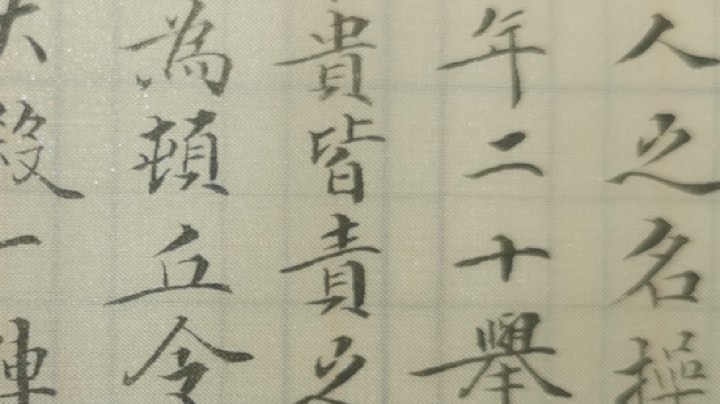 人之名操
年二十舉
貴皆責之
為頓丘令
大殺一陣